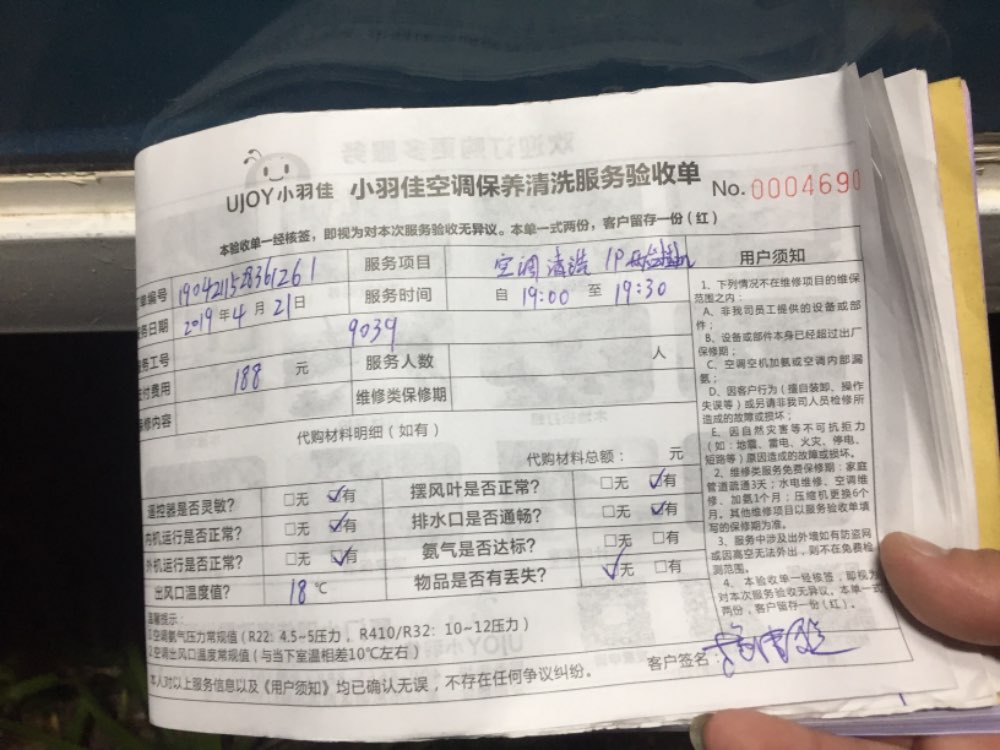 UJOY小羽佳 小羽佳空调保养清洗服务验收单 No. 0004690
本验收单一经核签，即视为对本次服务验收无异议。本单一式两份，客户留存一份（红）
单编号 1904211528361261 服务项目 空调清洗 1P
务日期 2019年4月21日 服务时间 自 19:00 至 19:30
务工号 9039 服务人数 人
付费用 188 元 维修类保修期
修内容
代购材料明细（如有）
代购材料总额： 元
遥控器是否灵敏？ □无 ☑有 摆风叶是否正常？ □无 ☑有
内机运行是否正常？ □无 ☑有 排水口是否通畅？ □无 ☑有
外机运行是否正常？ □无 ☑有 氨气是否达标？ □无 □有
出风口温度值？ 18 ℃ 物品是否有丢失？ ☑无 □有
温馨提示：
1.空调氨气压力常规值（R22：4.5~5压力，R410/R32：10~12压力）
2.空调出风口温度常规值（与当下室温相差10℃左右）
本人对以上服务信息以及《用户须知》均已确认无误，不存在任何争议纠纷。
客户签名：
用户须知
1、下列情况不在维修项目的维保
范围之内：
A、非我司员工提供的设备或部
件；
B、设备或部件本身已经超过出厂
保修期；
C、空调空机加氨或空调内部漏
氨；
D、因客户行为（擅自装卸、操作
失误等）或另请非我司人员检修所
造成的故障或损坏；
E、因自然灾害等不可抗拒力
（如：地震、雷电、火灾、停电、
短路等）原因造成的故障或损坏。
2、维修类服务免费保修期：家庭
管道疏通3天；水电维修、空调维
修、加氨1个月；压缩机更换6个
月。其他维修项目以服务验收单填
写的保修期为准。
3、服务中涉及出外墙如有防盗网
或因高空无法外出，则不在免费检
测范围。
4、本验收单一经核签，即视为
对本次服务验收无异议。本单一式
两份，客户留存一份（红）。